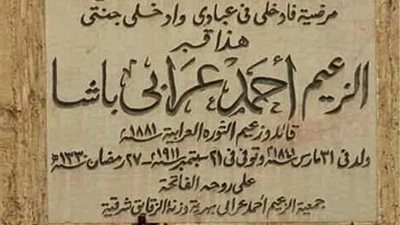 مرضية فادخلى فى عبادى وادخلى جنتى
هذا قبر
الزعيم أحمد عرابى باشا
قائد وزعيم الثورة العرابية ١٨٨١م
ولد فى ٣١ مارس ١٨٤١م وتوفى فى ٢١ سبتمبر ١٩١١م - ٢٧ رمضان ١٣٣٠هـ
على روحه الفاتحة
جمعية الزعيم أحمد عرابى بهرية رزنة الزقازيق شرقية